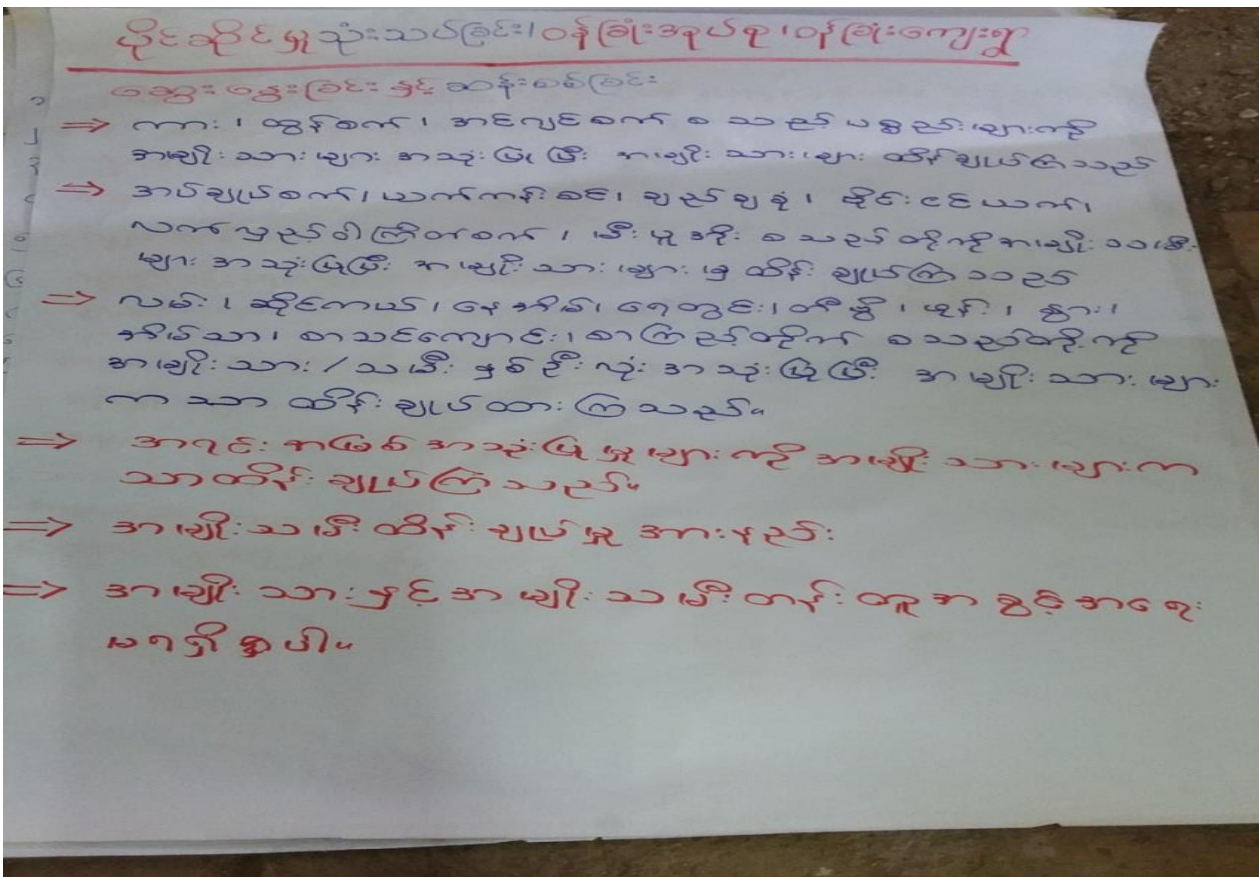 ပိုင်ဆိုင်မှုသုံးသပ်ခြင်း၊ ဝန်ခြုံးအုပ်စု၊ ဝန်ခြုံးကျေးရွာ
ဆွေးနွေးခြင်း နှင့် ဆန်းစစ်ခြင်း
⇒ ကား၊ ထွန်စက်၊ အင်ဂျင်စက် စသည့် ပစ္စည်းများကို
အမျိုးသားများ အသုံးပြုပြီး အမျိုးသားများ ထိန်းချုပ်ကြသည်
⇒ အပ်ချုပ်စက်၊ ယက်ကန်းစင်၊ ချည်ချခုံ၊ ဗိုင်းငင်ယက်၊
လက်လှည့်ဝါကြိတ်စက်၊ မီးပူအိုး စသည်တို့ကို အမျိုးသမီး
များ အသုံးပြုပြီး အမျိုးသားများမှ ထိန်းချုပ်ကြသည်
⇒ လမ်း၊ ဆိုင်ကယ်၊ နေအိမ်၊ ရေတွင်း၊ တီဗွီ၊ ဖုန်း၊ နွား၊
အိမ်သာ၊ စာသင်ကျောင်း၊ စာကြည့်တိုက် စသည်တို့ကို
အမျိုးသား / သမီး နှစ်ဦးလုံး အသုံးပြုပြီး အမျိုးသားများ
ကသာ ထိန်းချုပ်ထားကြသည်။
⇒ အရင်းအမြစ်အသုံးပြုမှုများကို အမျိုးသားများက
သာထိန်းချုပ်ကြသည်။
⇒ အမျိုးသမီးထိန်းချုပ်မှု အားနည်း
⇒ အမျိုးသားနှင့်အမျိုးသမီးတန်းတူအခွင့်အရေး
မရရှိရှာပါ။